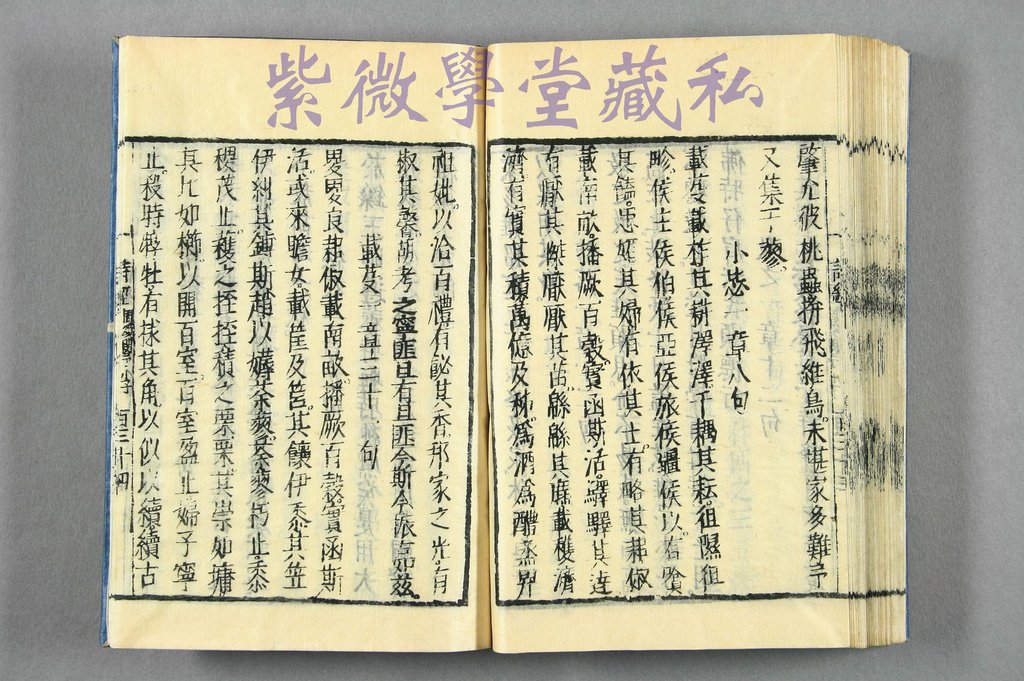 紫微學堂藏私
肇允彼桃蟲拚飛維鳥未堪家多難予
又集于蓼
小毖一章八句
載芟載柞其耕澤澤千耦其耘徂隰徂
畛侯主侯伯侯亞侯旅侯疆侯以有嗿
其饁思媚其婦有依其士有略其耜俶
載南畝播厥百穀實函斯活驛驛其達
有厭其傑厭厭其苗緜緜其麃載穫濟
濟有實其積萬億及秭爲酒爲醴烝畀
祖妣以洽百禮有飶其香邦家之光有
椒其馨胡考之寧匪且有且匪今斯今振如茲
載芟一章三十句
畟畟良耜俶載南畝播厥百穀實函斯
活或來瞻女載筐及筥其饟伊黍其笠
伊糾其鎛斯趙以薅荼蓼荼蓼朽止黍
稷茂止穫之挃挃積之栗栗其崇如墉
其比如櫛以開百室百室盈止婦子寧
止殺時犉牡有捄其角以似以續續古
詩經 百二十四